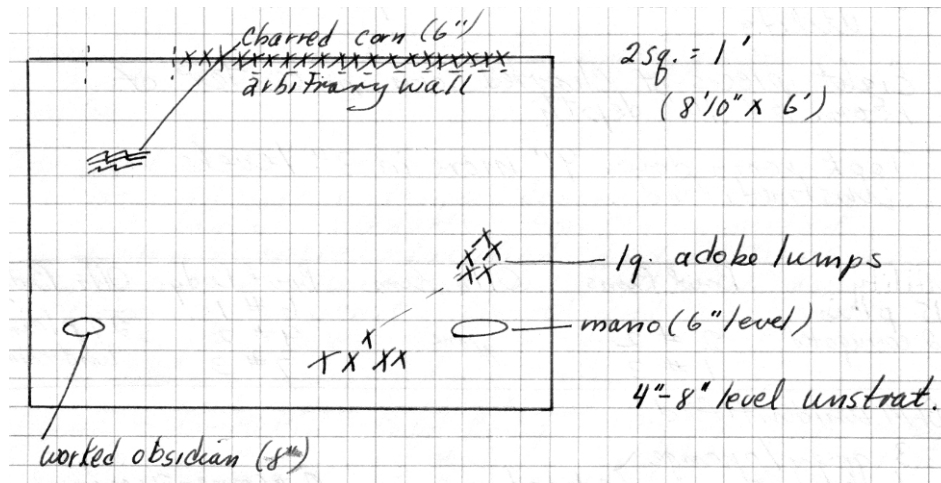 charred corn (6")
arbitrary wall
2 sq. = 1'
(8'10" x 6')
lg. adobe lumps
mano (6" level)
4"-8" level unstrat.
worked obsidian (8")